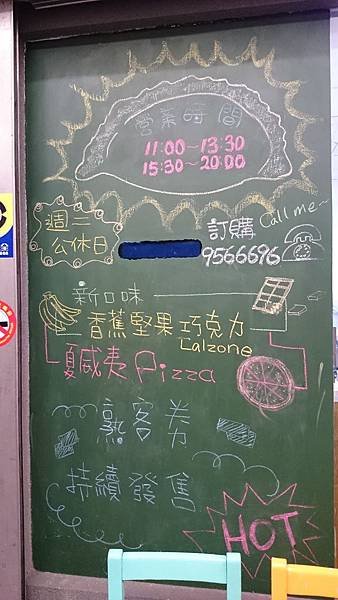 營業時間
11:00~13:30
15:30~20:00
週二
公休日
訂購 Call me~
9566696
新口味
香蕉堅果巧克力
Calzone
夏威夷 Pizza
熟客券
持續發售
HOT